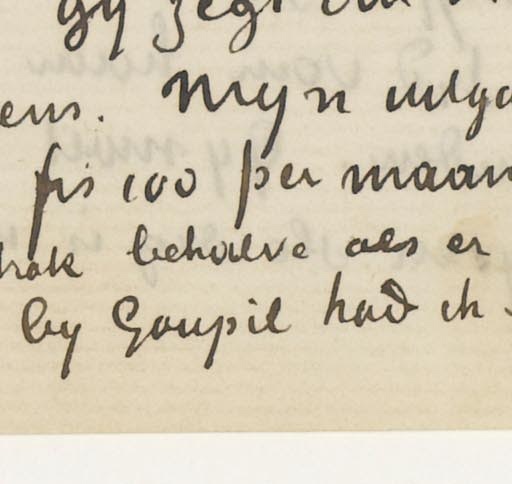 gy zegt
ens. Myn uitga
frs 100 per maan
behalve als er
by Goupil had ik